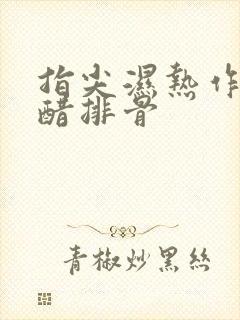 指尖濕熱作
醋排骨
青椒炒黑絲